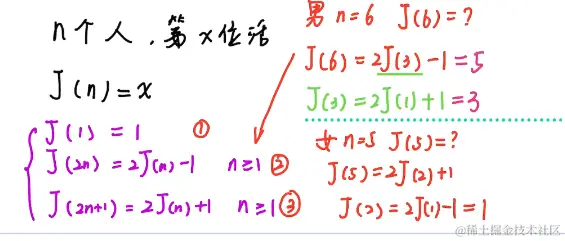 n个人，第x位活
J(n)=x
J(1) = 1 ①
J(2n) = 2J(n)-1 n≥1 ②
J(2n+1) = 2J(n)+1 n≥1 ③
男 n=6 J(6)=?
J(6)=2J(3)-1=5
J(3)=2J(1)+1=3
女 n=5 J(5)=?
J(5)=2J(2)+1
J(2)=2J(1)-1=1
@稀土掘金技术社区